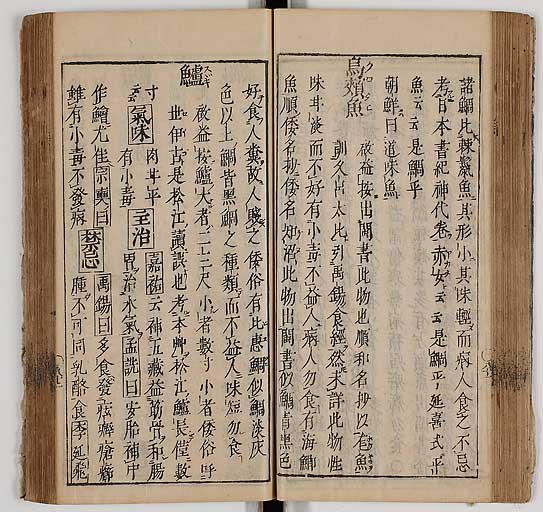 諸鯛比棘鬣魚其形小其味輕而病人食之不忌
考日本書紀神代卷赤女云云是鯛乎延喜式平
魚云云是鯛乎
朝鮮曰道味魚
烏頰魚
啟益按出閩書此物也順和名抄以
朝久出太比引禹錫食經然未詳此物性
味甘淡而不好有小毒不益人病人勿食有海鯽
魚順倭名抄倭名知沼此物出閩書似鯛肯黑色
好食人糞故人賤之倭俗有比惠鯛似鯛淡灰
色以上鯛皆黑鯛之種類而不益人味短勿食
鱸
啟益按鱸大者二三尺小者數寸小者倭俗呼
世伊古是松江讀誤也考本艸松江鱸長僅數
寸
云云
氣味
肉甘平
有小毒
主治
嘉祐云補五藏益筋骨和腸
胃治水氣孟詵曰安胎補中
作鱠尤佳宗奭曰
雖有小毒不發病
禁忌
禹錫曰多食發痃癖瘡癤
腫不可同乳酪食李廷飛